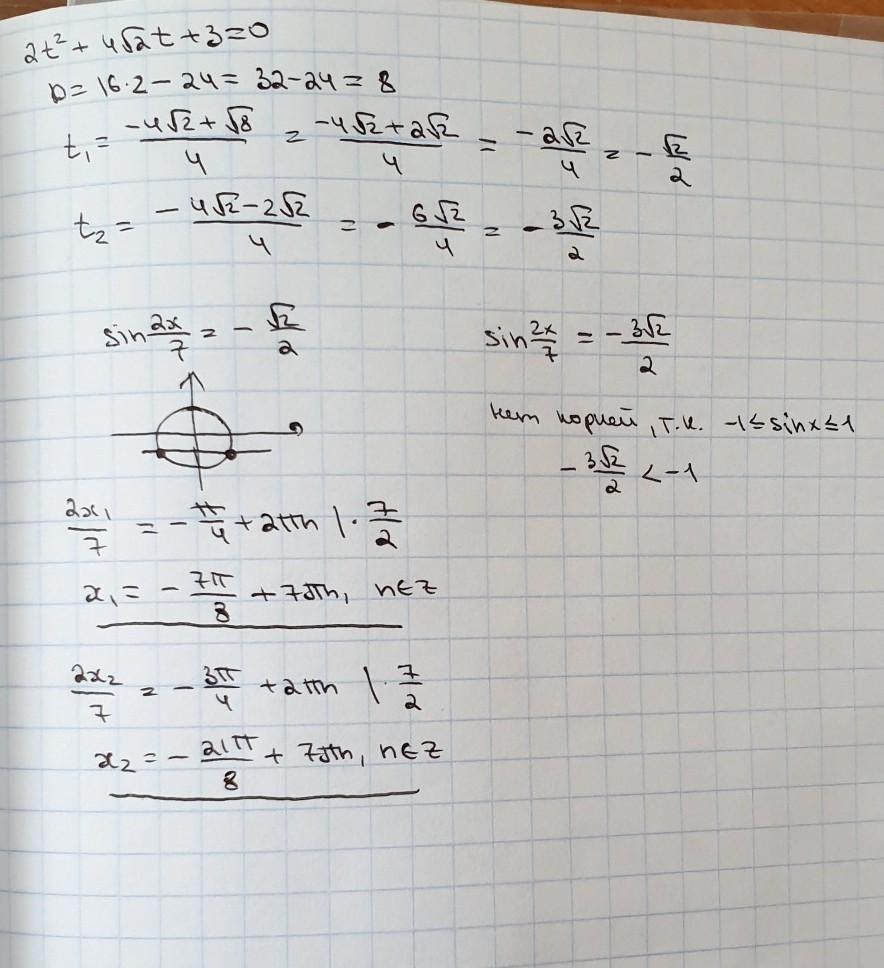 2t² + 4√2t + 3 = 0
D = 16·2 − 24 = 32 − 24 = 8
t₁ = (−4√2 + √8)/4 = (−4√2 + 2√2)/4 = −2√2/4 = −√2/2
t₂ = (−4√2 − 2√2)/4 = −6√2/4 = −3√2/2
sin 2x/7 = −√2/2
sin 2x/7 = −3√2/2
нет корней, т.к. −1 ≤ sinx ≤ 1
−3√2/2 < −1
2x₁/7 = −π/4 + 2πn | · 7/2
x₁ = −7π/8 + 7πn, n∈Z
2x₂/7 = −3π/4 + 2πn | · 7/2
x₂ = −21π/8 + 7πn, n∈Z